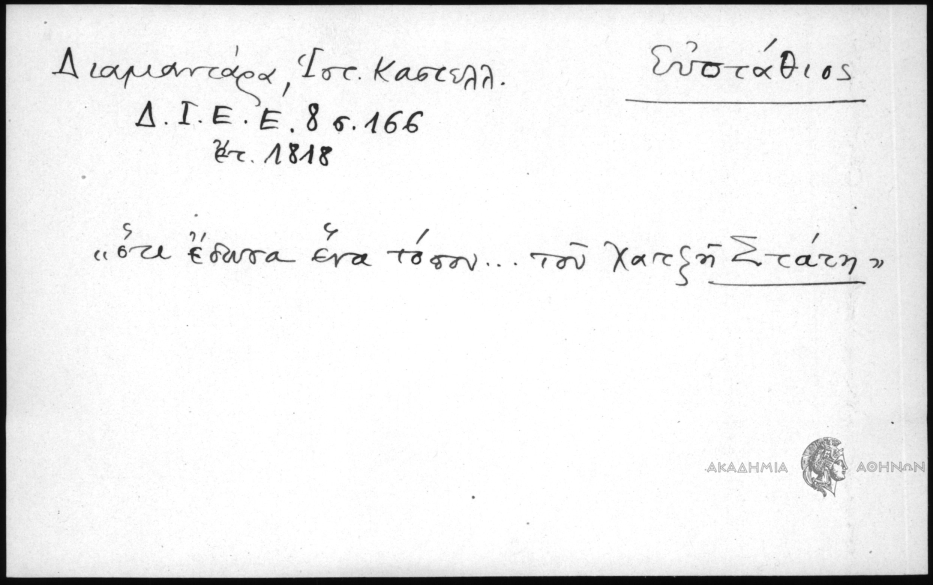 Διαμαντάρα, Ἱστ. Καστελλ.
Εὐστάθιος
Δ. Ι. Ε. Ε. 8 σ. 166
ἔτ. 1818
«ὅτι ἔδωσα ἕνα τόπον... τοῦ Χατζῆ Στάτη»
ΑΚΑΔΗΜΙΑ ΑΘΗΝΩΝ